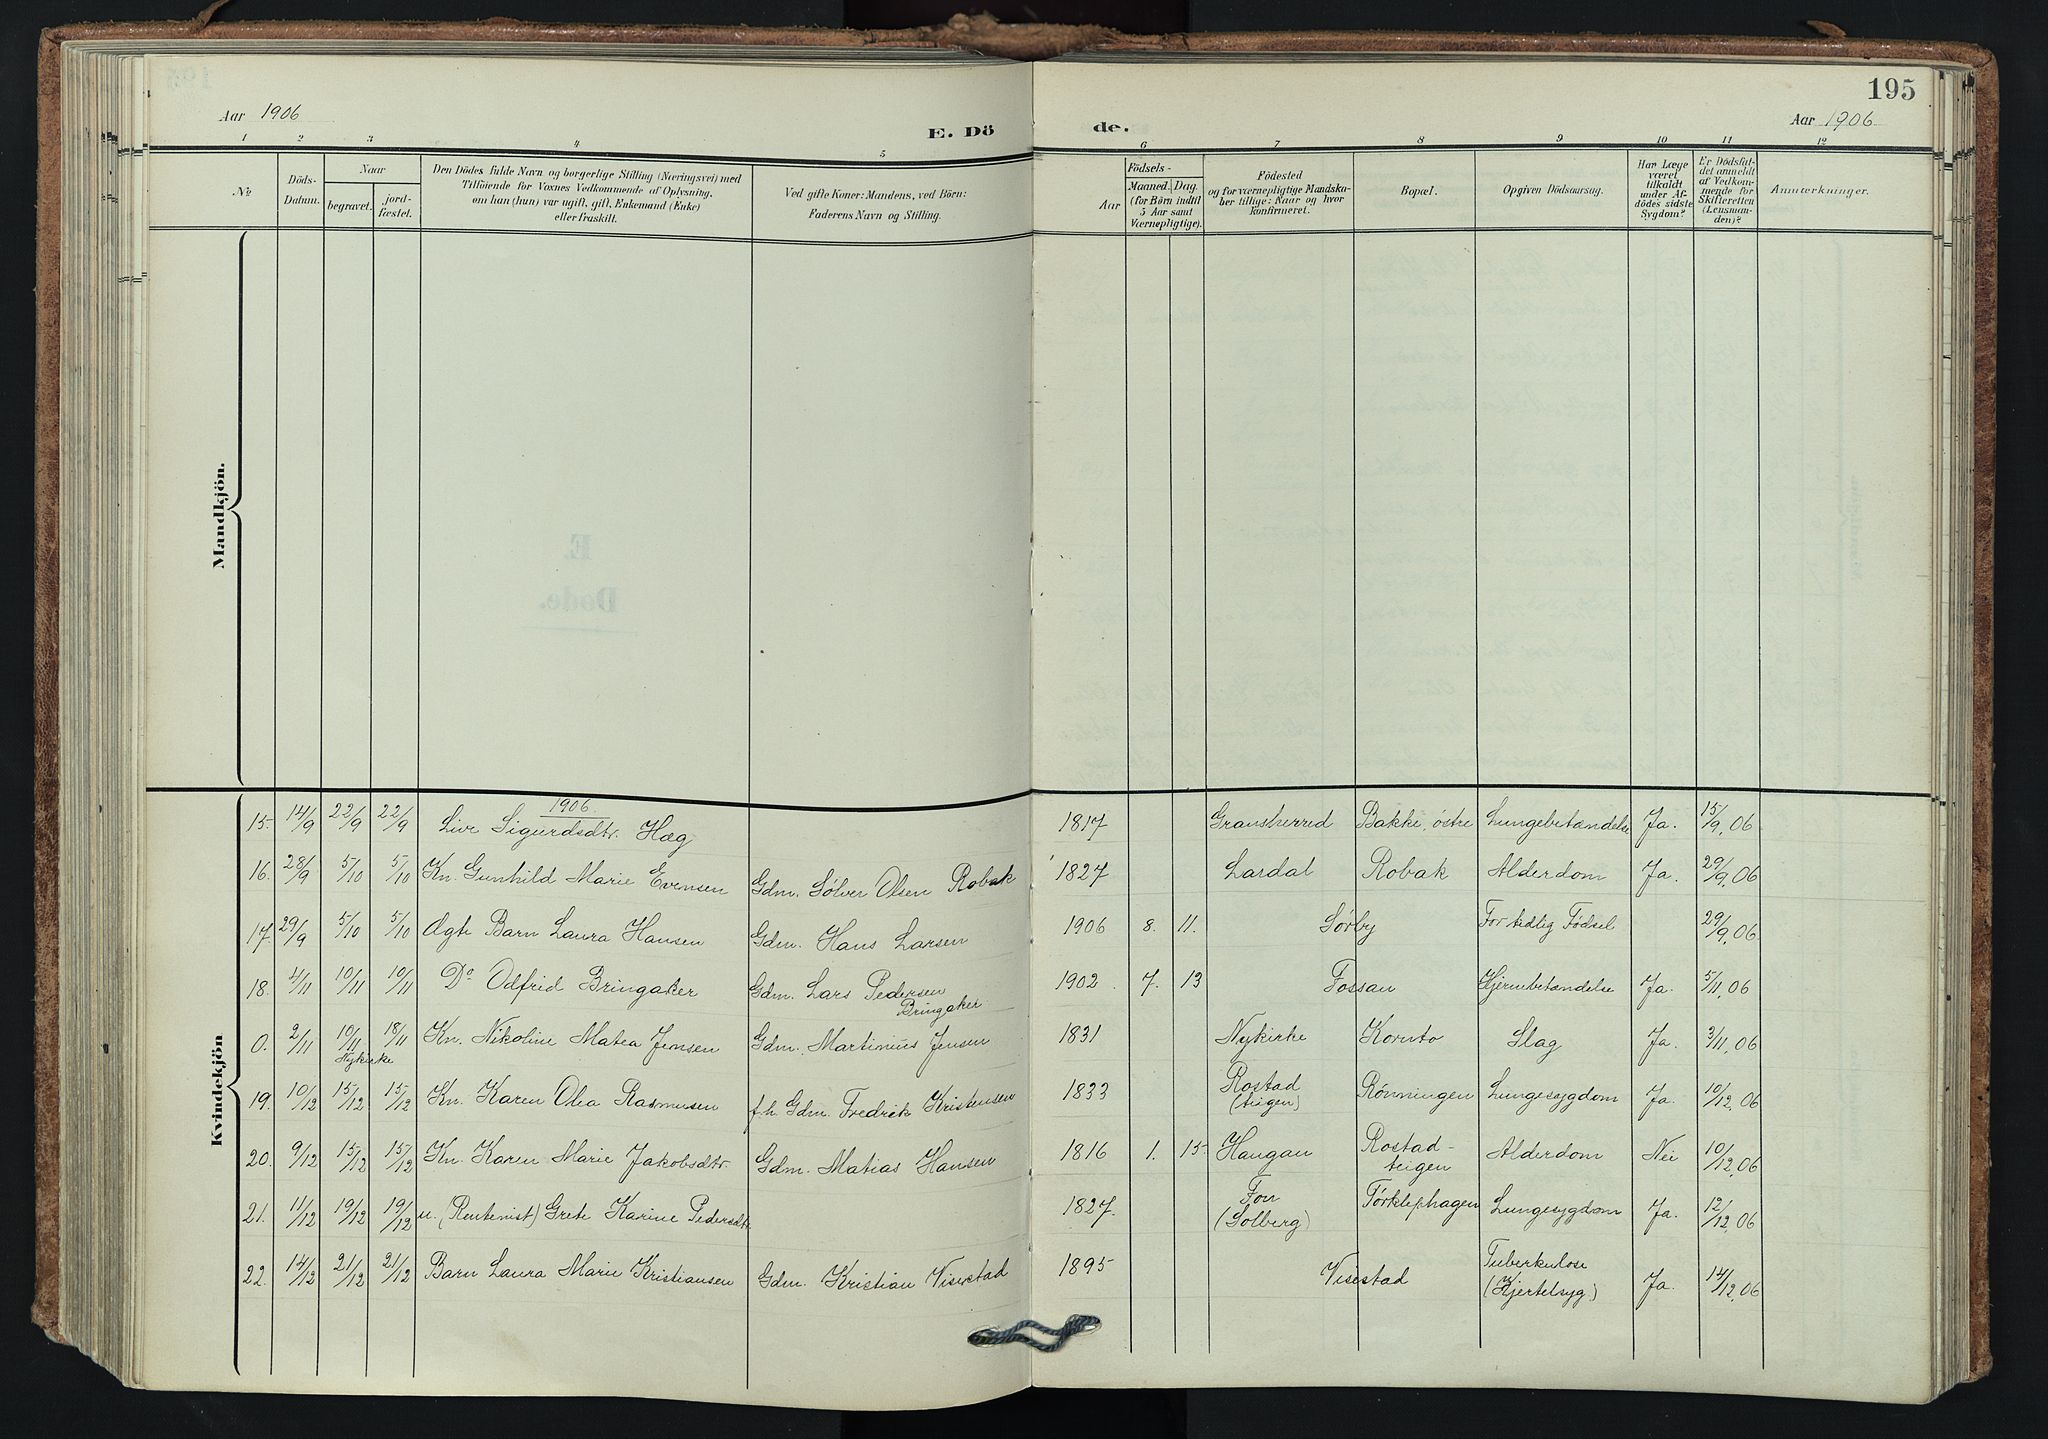 195
Aar 1906
E. Dö
de.
Aar 1906
1 2 3 4 5 6 7 8 9 10 11 12
No
Döds-Datum.
Naar
begravet.
jord-fæstet.
Den Dödes fulde Navn og borgerlige Stilling (Næringsvei) med
Tilföiende för Voxnes Vedkommende af Oplysning,
om han (hun) var ugift, gift, Enkemand (Enke)
eller fraskilt.
Ved gifte Koner: Mandens, ved Börn:
Faderens Navn og Stilling.
Födsels-
Aar
Maaned. Dag.
(for Börn indtil
5 Aar samt
Værnepligtige).
Födested
og for værnepligtige Mandska-
ber tillige: Naar og hvor
konfirmeret.
Bopæl.
Opgiven Dödsaarsag.
Har Læge
været
tilkaldt
under Af-
dödes sidste
Sygdom?
Er Dödsfal-
det anmeldt
af Vedkom-
mende for
Skifteretten
(Lensman-
den)?
Anmærkninger.
Mandkjön.
Kvindekjön
1906.
15. 14/9 22/9 22/9 Live Sigurdsdtr. Hæg 1817 Gransherred Bakke, østre Lungebetændelse Ja. 15/9, 06
16. 28/9 5/10 5/10 Kn. Gunhild Marie Evensen Gdm. Sølver Olsen Robak 1827 Lardal Robak Alderdom Ja. 29/9, 06
17. 29/9 5/10 5/10 Ægte Barn Laura Hansen Gdm. Hans Larsen 1906 8. 11. Sørby For tidlig Fødsel 29/9, 06
18. 4/11 10/11 10/11 Do Odfrid Bringaker Gdm. Lars Pedersen
Bringaker 1902 7. 13 Fossan Hjernebetændelse Ja. 5/11, 06
0. 2/11 10/11 18/11 Kn. Nikoline Matea Jensen Gdm. Martinius Jensen 1831 Nykirke Kornto Slag Ja. 3/11, 06
Nykirke
19. 10/12 15/12 15/12 Kn. Karen Olea Rasmusen f.h. Gdm. Fredrik Kristensen 1833 Rostad
(teigen) Rönningen Lungesygdom Ja. 10/12, 06
20. 9/12 15/12 15/12 Kn. Karen Marie Jakobsdtr. Gdm. Matias Hansen 1816 1. 15. Haugan Rostad-
teigen Alderdom Nei 10/12, 06
21. 11/12 19/12 19/12 u. (Rentenist) Grete Karine Pedersdtr. 1827. Fon
(Solberg) Tørklephagen Lungesygdom Ja. 12/12, 06
22. 14/12 21/12 21/12 Barn Laura Marie Kristiansen Gdm. Kristian Visestad 1895 Visestad Tuberkulose
(Kjertelsyg) Ja. 14/12, 06
E.
Døde.